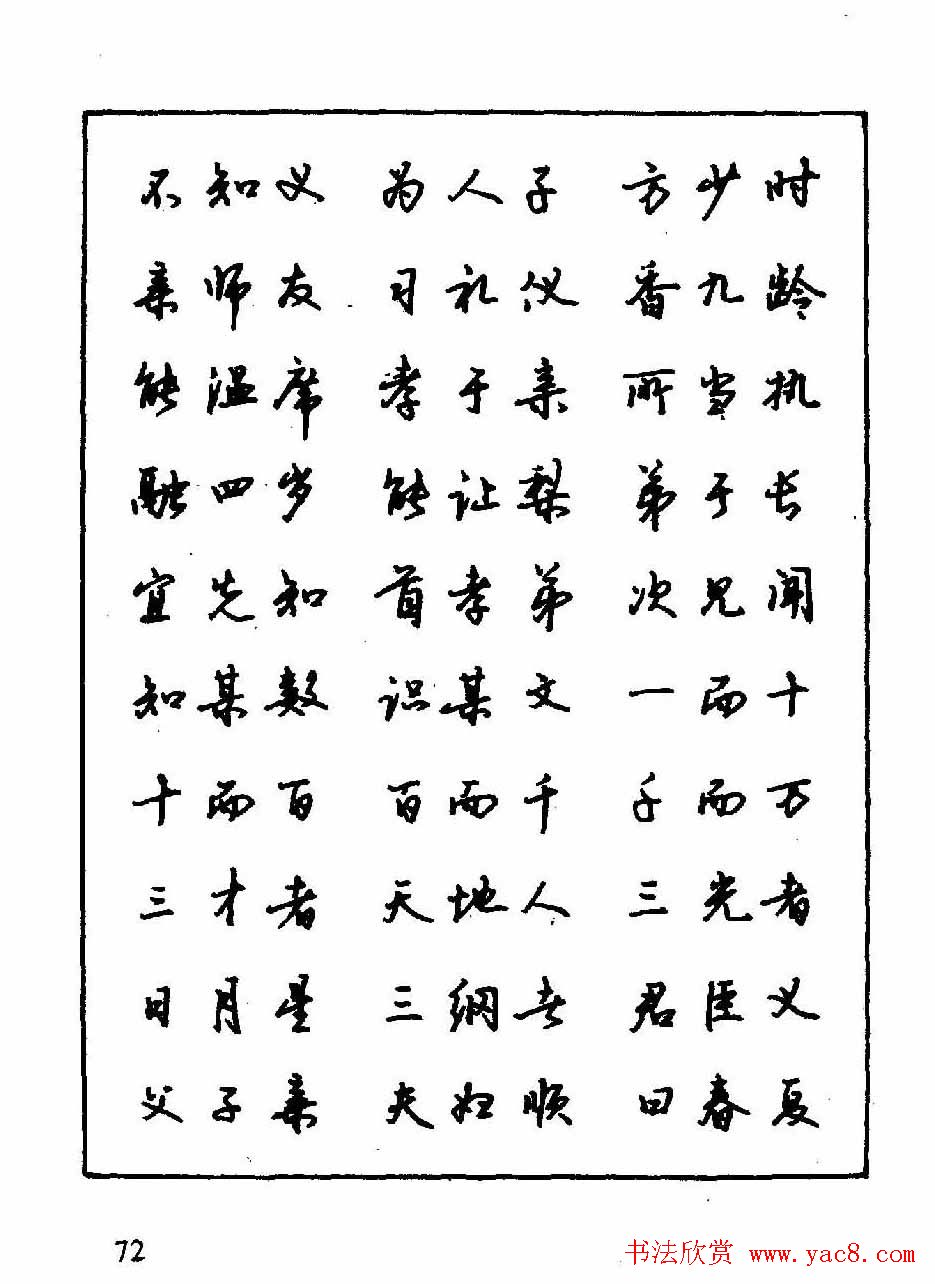 不知义 为人子 方少时
亲师友 习礼仪 香九龄
能温席 孝于亲 所当执
融四岁 能让梨 弟于长
宜先知 首孝弟 次见闻
知某数 识某文 一而十
十而百 百而千 千而万
三才者 天地人 三光者
日月星 三纲者 君臣义
父子亲 夫妇顺 曰春夏
72
书法欣赏 www.yac8.com